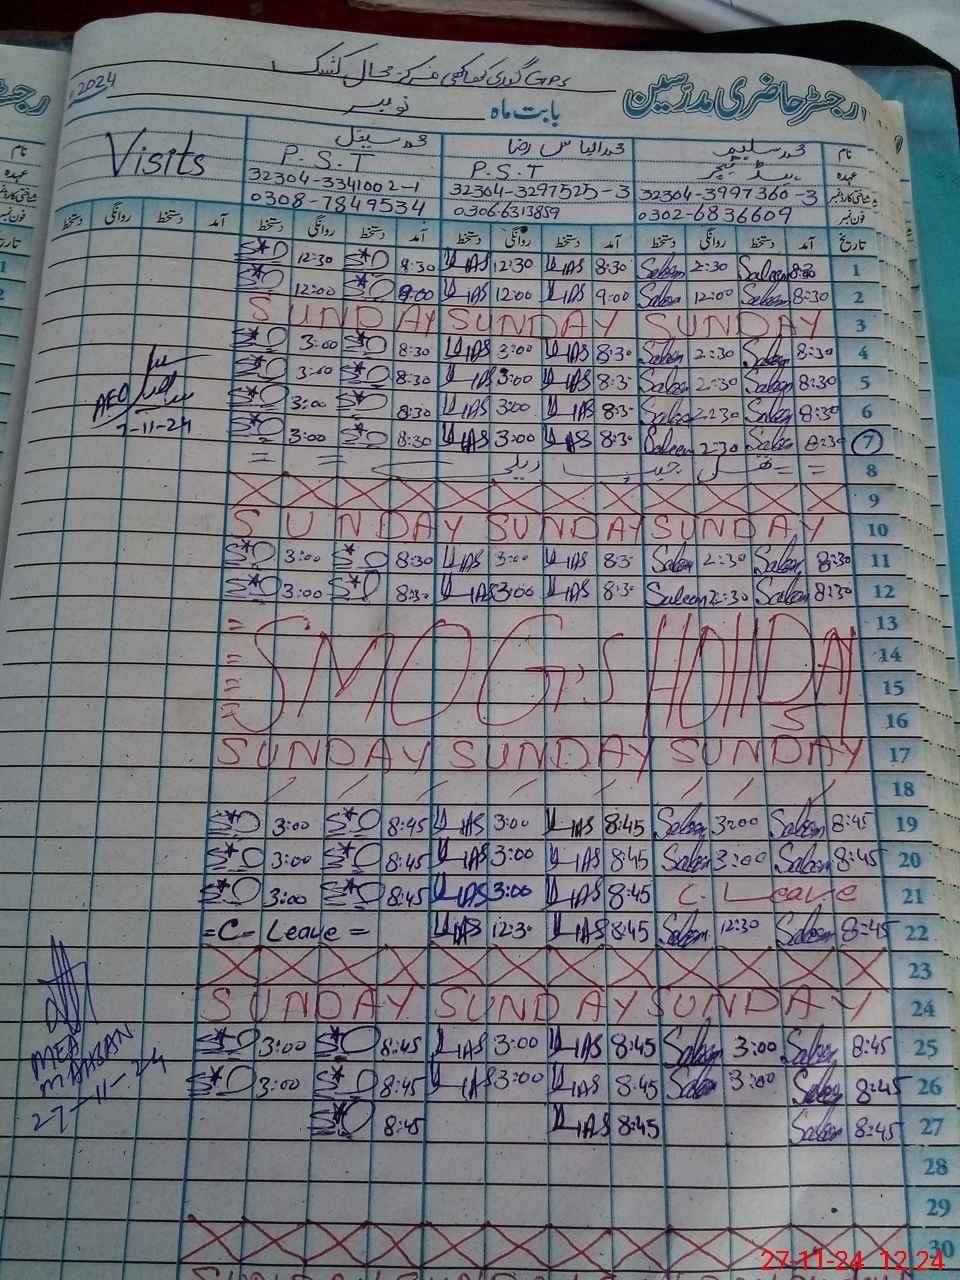 رجسٹر حاضری مدرسین
GPS
2024
بابت ماہ نومبر
Visits
نام محمد سلیم محمد الیاس رضا
عہدہ P.S.T P.S.T
شناختی کارڈ نمبر 32304-3997360-3 32304-3297525-3 32304-3341002-1
فون نمبر 0302-6836609 0306-6313859 0308-7849534
تاریخ آمد دستخط روانگی دستخط آمد دستخط روانگی دستخط آمد دستخط روانگی دستخط آمد دستخط روانگی دستخط
1 8:30 Saleem 2:30 Saleem 8:30 LIAS 12:30 LIAS 8:30 12:30
2 8:30 Saleem 12:00 Saleem 9:00 LIAS 12:00 LIAS 9:00 12:00
3 SUNDAY SUNDAY SUNDAY
4 8:30 Saleem 2:30 Saleem 8:30 LIAS 3:00 LIAS 8:30 3:00
5 8:30 Saleem 2:30 Saleem 8:30 LIAS 3:00 LIAS 8:30 3:00
6 8:30 Saleem 2:30 Saleem 8:30 LIAS 3:00 LIAS 8:30 3:00
7 8:30 Saleem 2:30 Saleem 8:30 LIAS 3:00 LIAS 8:30 3:00
AEO
7-11-24
8
9
10 SUNDAY SUNDAY SUNDAY
11 8:30 Saleem 2:30 Saleem 8:30 LIAS 3:00 LIAS 8:30 3:00
12 8:30 Saleem 2:30 Saleem 8:30 LIAS 3:00 LIAS 8:30 3:00
13
14
SMOG'S HOLIDAYS
15
16
17 SUNDAY SUNDAY SUNDAY
18
19 8:45 Saleem 3:00 Saleem 8:45 LIAS 3:00 LIAS 8:45 3:00
20 8:45 Saleem 3:00 Saleem 8:45 LIAS 3:00 LIAS 8:45 3:00
21 C. Leave 8:45 LIAS 3:00 LIAS 8:45 3:00
22 8:45 Saleem 12:30 Saleem 8:45 LIAS 12:30 LIAS =C- Leave=
23
24 SUNDAY SUNDAY SUNDAY
25 8:45 Saleem 3:00 Saleem 8:45 LIAS 3:00 LIAS 8:45 3:00
26 8:45 Saleem 3:00 Saleem 8:45 LIAS 3:00 LIAS 8:45 3:00
27 8:45 Saleem 8:45 LIAS 8:45
MEA
27-11-24
28
29
30
27-11-24 12:24